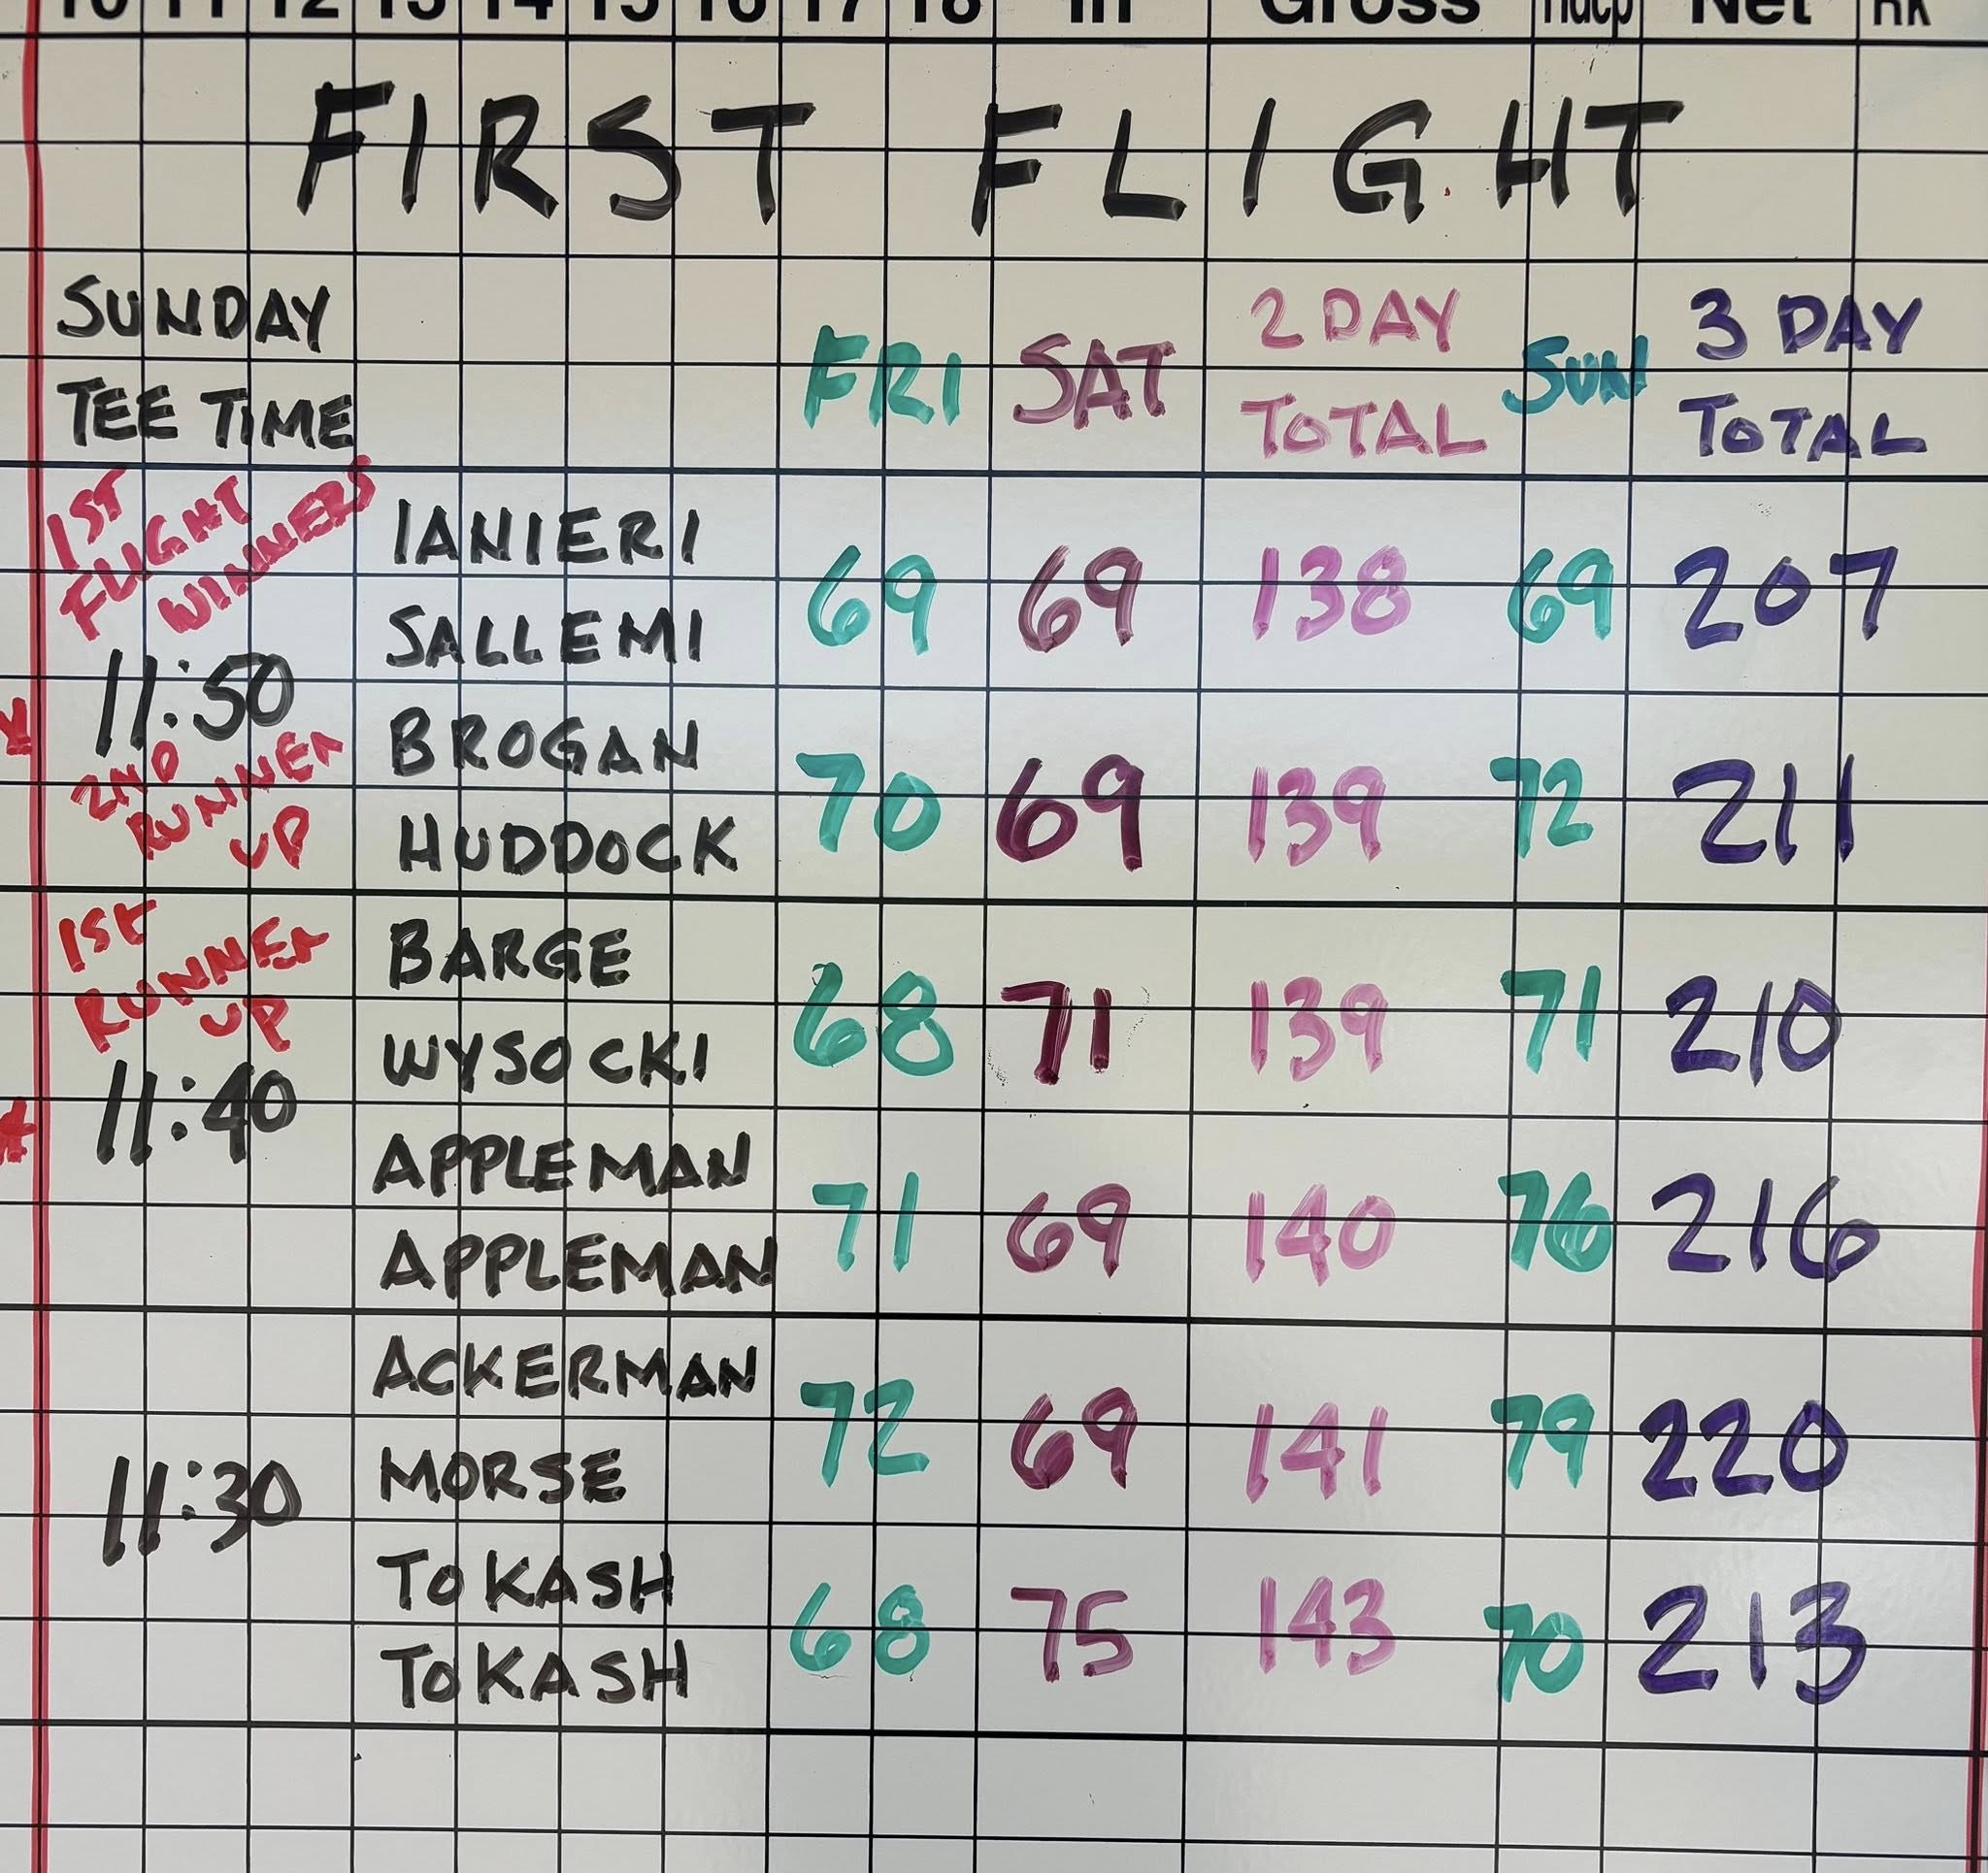 10 11 12 13 14 15 16 17 18 In Gross Hdcp Net Rk
FIRST FLIGHT
SUNDAY
TEE TIME
FRI SAT 2 DAY TOTAL SUN 3 DAY TOTAL
1ST
FLIGHT
WINNERS
IANIERI
SALLEMI
69 69 138 69 207
11:50
2ND
RUNNER
UP
BROGAN
HUDDOCK
70 69 139 72 211
1ST
RUNNER
UP
BARGE
WYSOCKI
68 71 139 71 210
11:40
APPLEMAN
APPLEMAN
71 69 140 76 216
ACKERMAN
MORSE
72 69 141 79 220
11:30
TOKASH
TOKASH
68 75 143 70 213